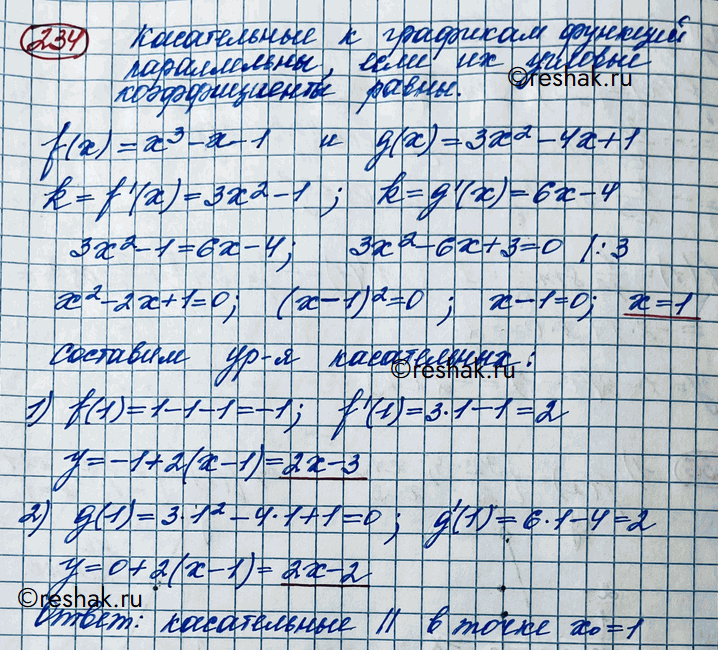 234 Касательные к графикам функций
параллельны, если их угловые
коэффициенты равны.
©reshak.ru
f(x)=x³-x-1 и g(x)=3x²-4x+1
k=f'(x)=3x²-1; k=g'(x)=6x-4
3x²-1=6x-4; 3x²-6x+3=0 |:3
x²-2x+1=0; (x-1)²=0; x-1=0; x=1
Составим ур-я касательных:
©reshak.ru
1) f(1)=1-1-1=-1; f'(1)=3·1-1=2
y=-1+2(x-1)=2x-3
2) g(1)=3·1²-4·1+1=0; g'(1)=6·1-4=2
y=0+2(x-1)=2x-2
©reshak.ru
Ответ: касательные || в точке x₀=1